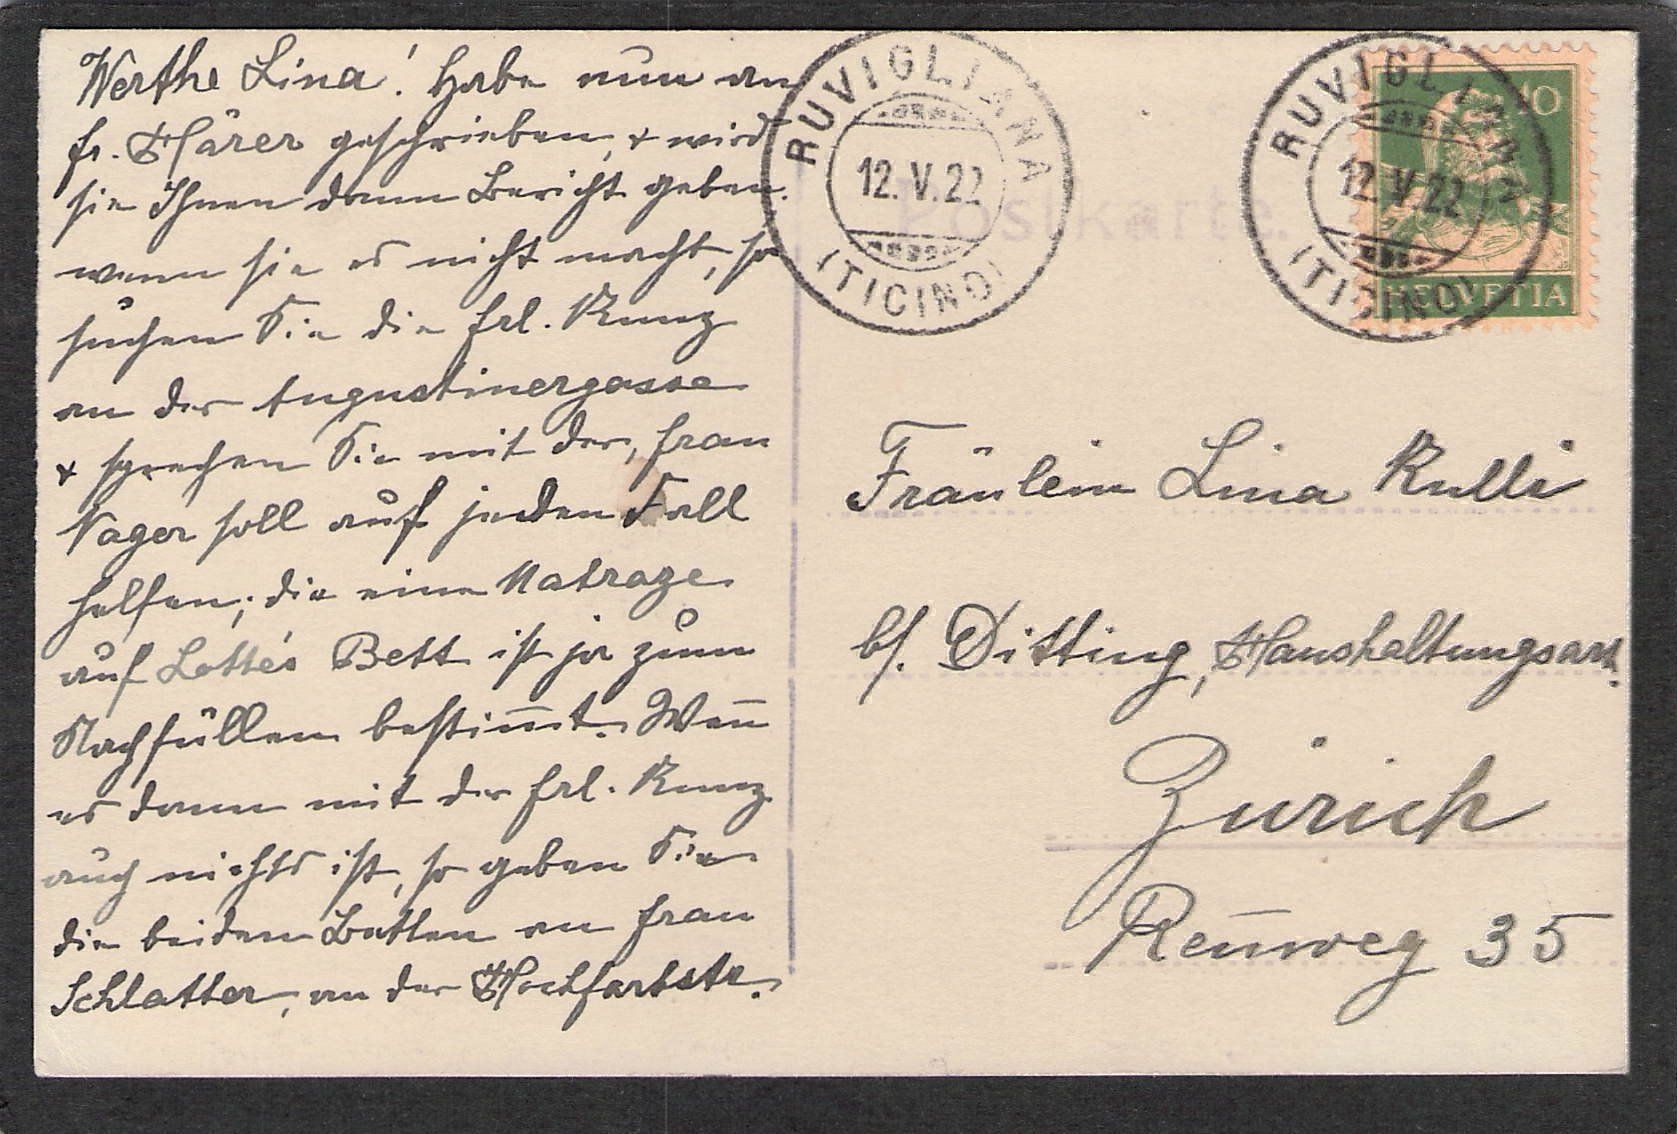 Werthe Lina! Habe nun an
fr. Härer geschrieben, & wird
sie Ihnen dann Bericht geben.
wenn sie es nicht macht, so
suchen Sie die Frl. Kunz
an der Augustinergasse
& sprechen Sie mit der, Frau
Nager soll auf jeden Fall
helfen; die eine Matraze
auf Lotte's Bett ist ja zum
Nachfüllen bestim̅t. Wen̅
es dann mit der Frl. Kunz
auch nichts ist, so geben Sie
die beiden Betten an Frau
Schlatter, an der Hochfarbstr.
RUVIGLIANA
12.V.22
(TICINO)
Postkarte.
RUVIGLIANA
12.V.22
(TICINO)
10
HELVETIA
Fräulein Lina Kulli
b/. Ditting, Haushaltungsart.
Zürich
Ren̅weg 35